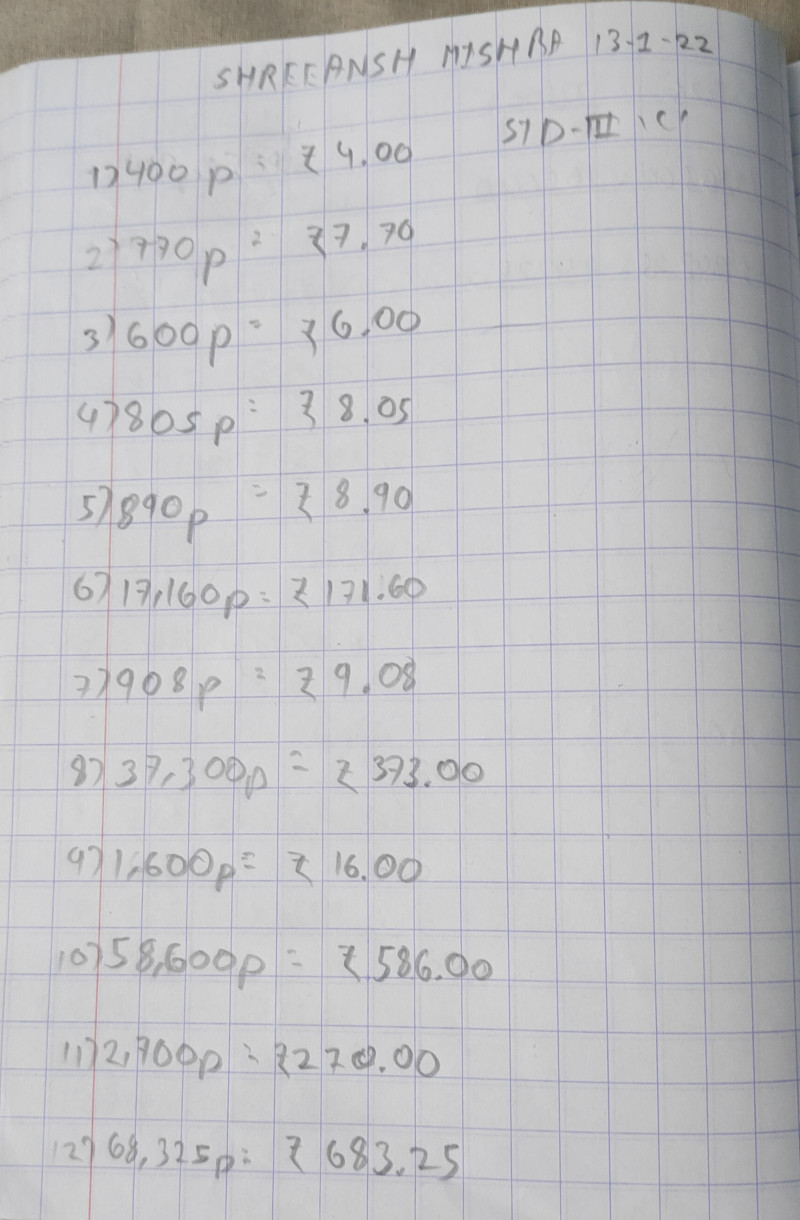 SHREEANSH MISHRA 13-1-22
STD-III 'C'
1) 400 p = ₹ 4.00
2) 770 p = ₹ 7.70
3) 600 p = ₹ 6.00
4) 805 p = ₹ 8.05
5) 890 p = ₹ 8.90
6) 17,160 p = ₹ 171.60
7) 908 p = ₹ 9.08
8) 37,300 p = ₹ 373.00
9) 1,600 p = ₹ 16.00
10) 58,600 p = ₹ 586.00
11) 2,700 p = ₹ 270.00
12) 68,325 p = ₹ 683.25